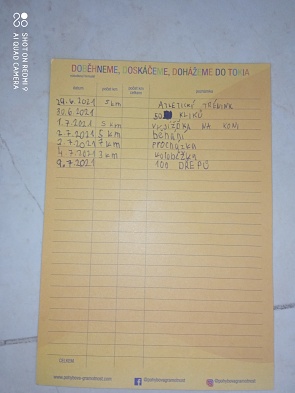 SHOT ON REDMI 9
AI QUAD CAMERA
DOBĚHNEME, DOSKÁČEME, DOHÁŽEME DO TOKIA
datum
počet km
počet km celkem
poznámka
29.6.2021 7km ATLETICKÝ TRÉNINK
30.6.2021 50 KLIKŮ
1.7.2021 5 km VYJÍŽĎKA NA KONI
2.7.2021 5 km BĚHÁNÍ
3.7.2021 7 km PROCHÁZKA
4.7.2021 3 km KOLOBĚŽKA
9.7.2021 100 DŘEPŮ
CELKEM: